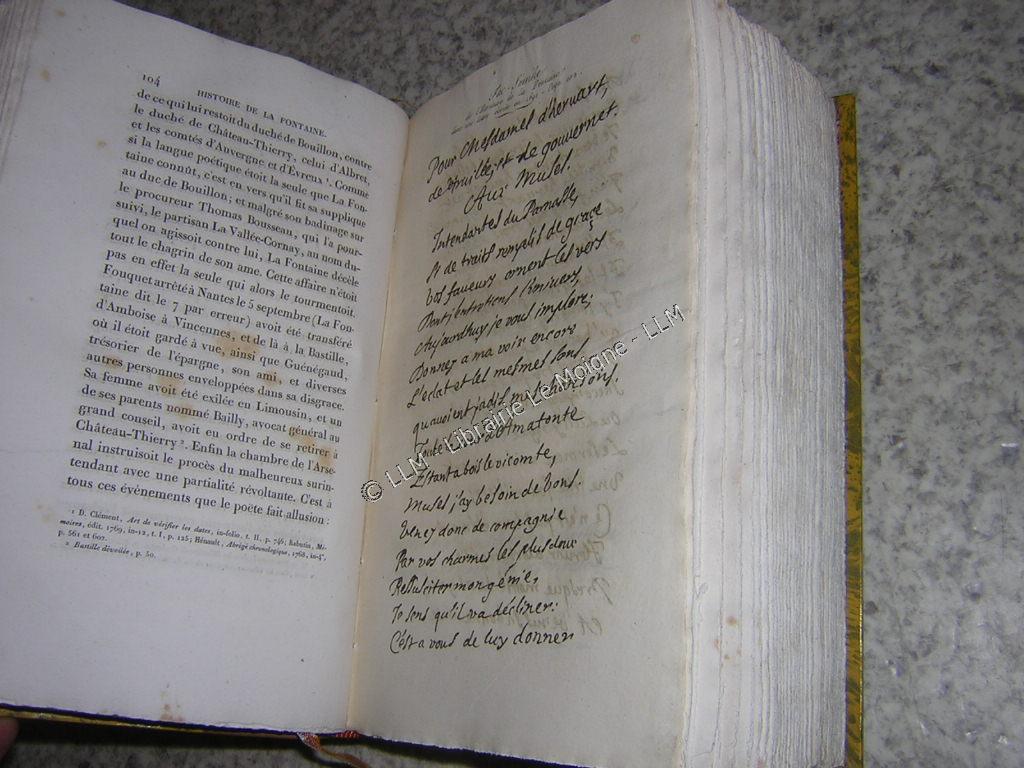 104
HISTOIRE DE LA FONTAINE.
de ce qui lui restoit du duché de Bouillon, contre
le duché de Château-Thierry, celui d'Albret,
et les comtés d'Auvergne et d'Évreux ¹. Comme
si la langue poétique étoit la seule que La Fon-
taine connût, c'est en vers qu'il fit sa supplique
au duc de Bouillon; et malgré son badinage sur
le procureur Thomas Bousseau, qui l'a pour-
suivi, le partisan La Vallée-Cornay, au nom du-
quel on agissoit contre lui, La Fontaine décèle
tout le chagrin de son ame. Cette affaire n'étoit
pas en effet la seule qui alors le tourmentoit.
Fouquet arrêté à Nantes le 5 septembre (La Fon-
taine dit le 7 par erreur) avoit été transféré
d'Amboise à Vincennes, et de là à la Bastille,
où il étoit gardé à vue, ainsi que Guénégaud,
trésorier de l'épargne, son ami, et diverses
autres personnes enveloppées dans sa disgrace.
Sa femme avoit été exilée en Limousin, et un
de ses parents nommé Bailly, avocat général au
grand conseil, avoit eu ordre de se retirer à
Château-Thierry ². Enfin la chambre de l'Arse-
nal instruisoit le procès du malheureux surin-
tendant avec une partialité révoltante. C'est à
tous ces événements que le poëte fait allusion:
1 D. Clément, Art de vérifier les dates, in-folio, t. II, p. 746; Rabutin, Mé-
moires, édit. 1769, in-12, t. I, p. 125; Hénault, Abrégé chronologique, 1768, in-4°,
p. 561 et 602.
2 Bastille dévoilée, p. 50.
Pour Mesdames d'hervart,
de et de gouvernet.
Aux Muses.
Intendantes du Parnasse,
Si de traits remplis de grace
Vos faveurs ornent les vers
Dont j'entretiens l'univers,
Aujourdhuy je vous implore;
Donnez a ma voix encore
L'eclat et les mesmes sons
qu'avoient jadis mes chansons.
Toute d'Amatonte
Estant a bois le vicomte,
Muses j'ay besoin de vous.
Venez donc de compagnie
Par vos charmes les plus doux
Ressusciter mon génie,
Je sens qu'il va décliner:
C'est a vous de luy donner
© LLM - Librairie Le Moigne - LLM